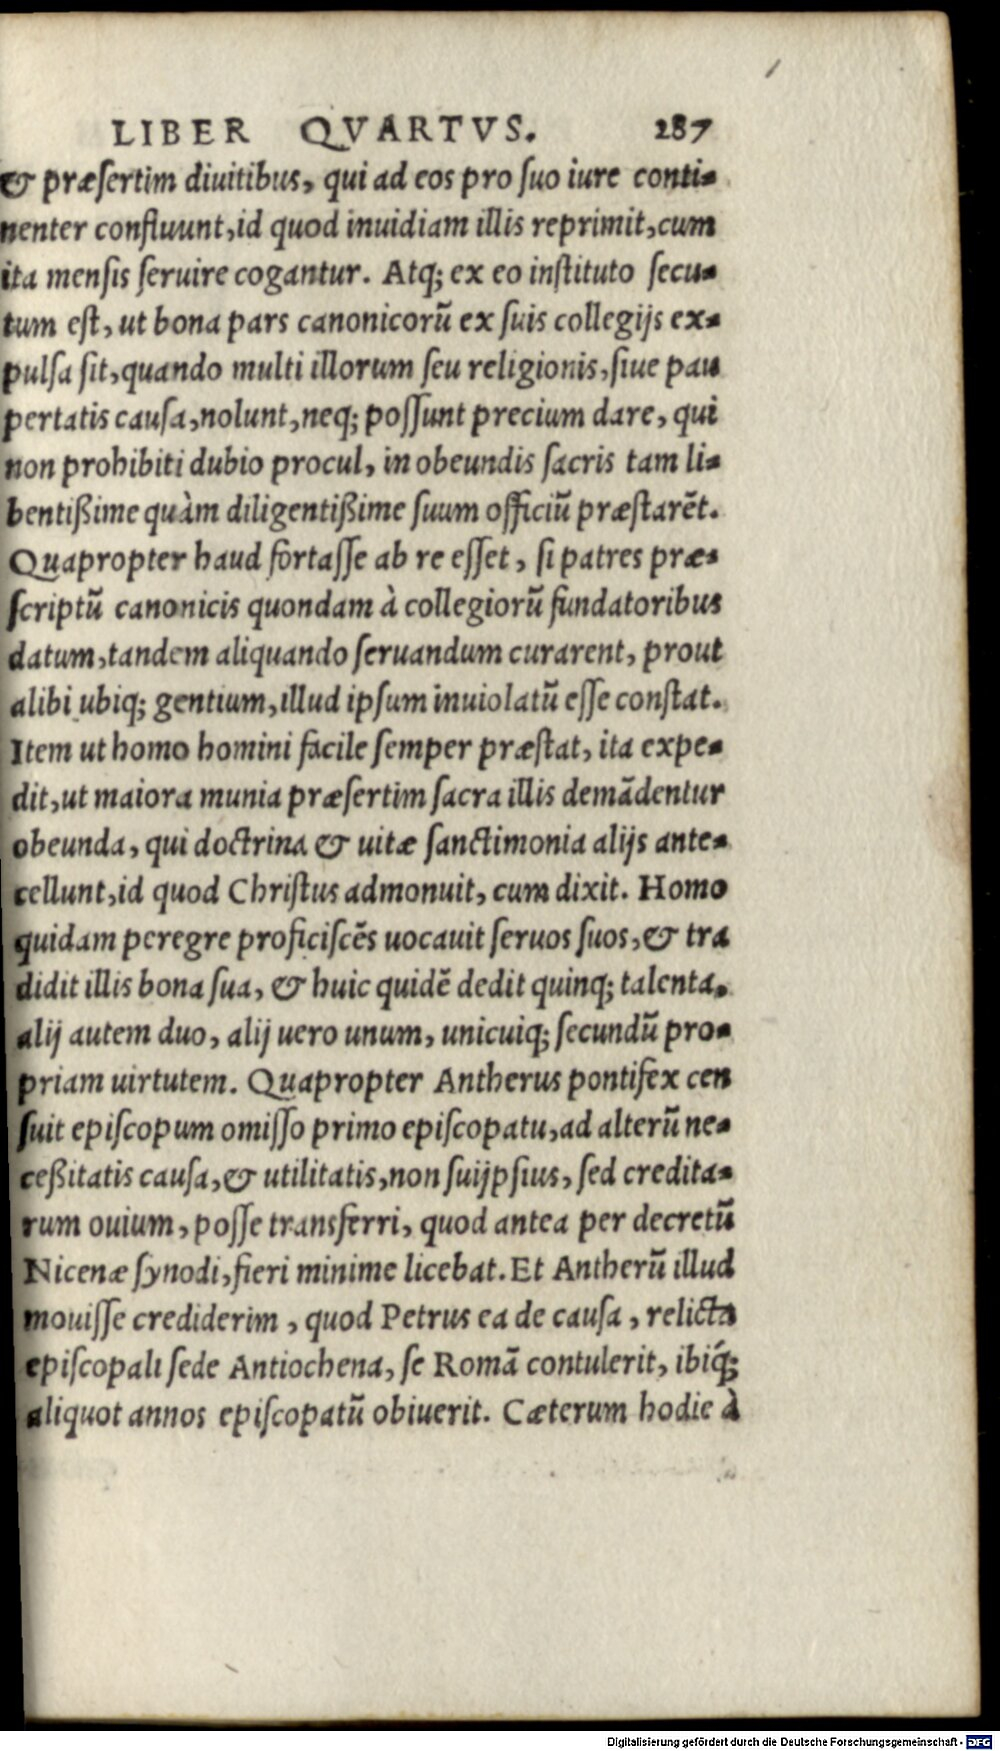 LIBER QVARTVS. 287
& præſertim diuitibus, qui ad eos pro ſuo iure conti-
nenter confluunt, id quod inuidiam illis reprimit, cum
ita menſis ſeruire cogantur. Atq; ex eo inſtituto ſecu-
tum eſt, ut bona pars canonicorũ ex ſuis collegijs ex-
pulſa ſit, quando multi illorum ſeu religionis, ſiue pau
pertatis cauſa, nolunt, neq; poſſunt precium dare, qui
non prohibiti dubio procul, in obeundis ſacris tam li-
bentißime quàm diligentißime ſuum officiũ præſtarẽt.
Quapropter haud fortaſſe ab re eſſet, ſi patres præ-
ſcriptũ canonicis quondam à collegiorũ fundatoribus
datum, tandem aliquando ſeruandum curarent, prout
alibi ubiq; gentium, illud ipſum inuiolatũ eſſe conſtat.
Item ut homo homini facile ſemper præſtat, ita expe-
dit, ut maiora munia præſertim ſacra illis demãdentur
obeunda, qui doctrina & uitæ ſanctimonia alijs ante-
cellunt, id quod Chriſtus admonuit, cum dixit. Homo
quidam peregre proficiſcẽs uocauit ſeruos ſuos, & tra
didit illis bona ſua, & huic quidẽ dedit quinq; talenta,
alij autem duo, alij uero unum, unicuiq; ſecundũ pro-
priam uirtutem. Quapropter Antherus pontifex cen
ſuit epiſcopum omiſſo primo epiſcopatu, ad alterũ ne-
ceßitatis cauſa, & utilitatis, non ſuijpſius, ſed credita-
rum ouium, poſſe transferri, quod antea per decretũ
Nicenæ ſynodi, fieri minime licebat. Et Antherũ illud
mouiſſe crediderim, quod Petrus ea de cauſa, relicta
epiſcopali ſede Antiochena, ſe Romã contulerit, ibiq́;
aliquot annos epiſcopatũ obiuerit. Cæterum hodie à
Digitalisierung gefördert durch die Deutsche Forschungsgemeinschaft - DFG